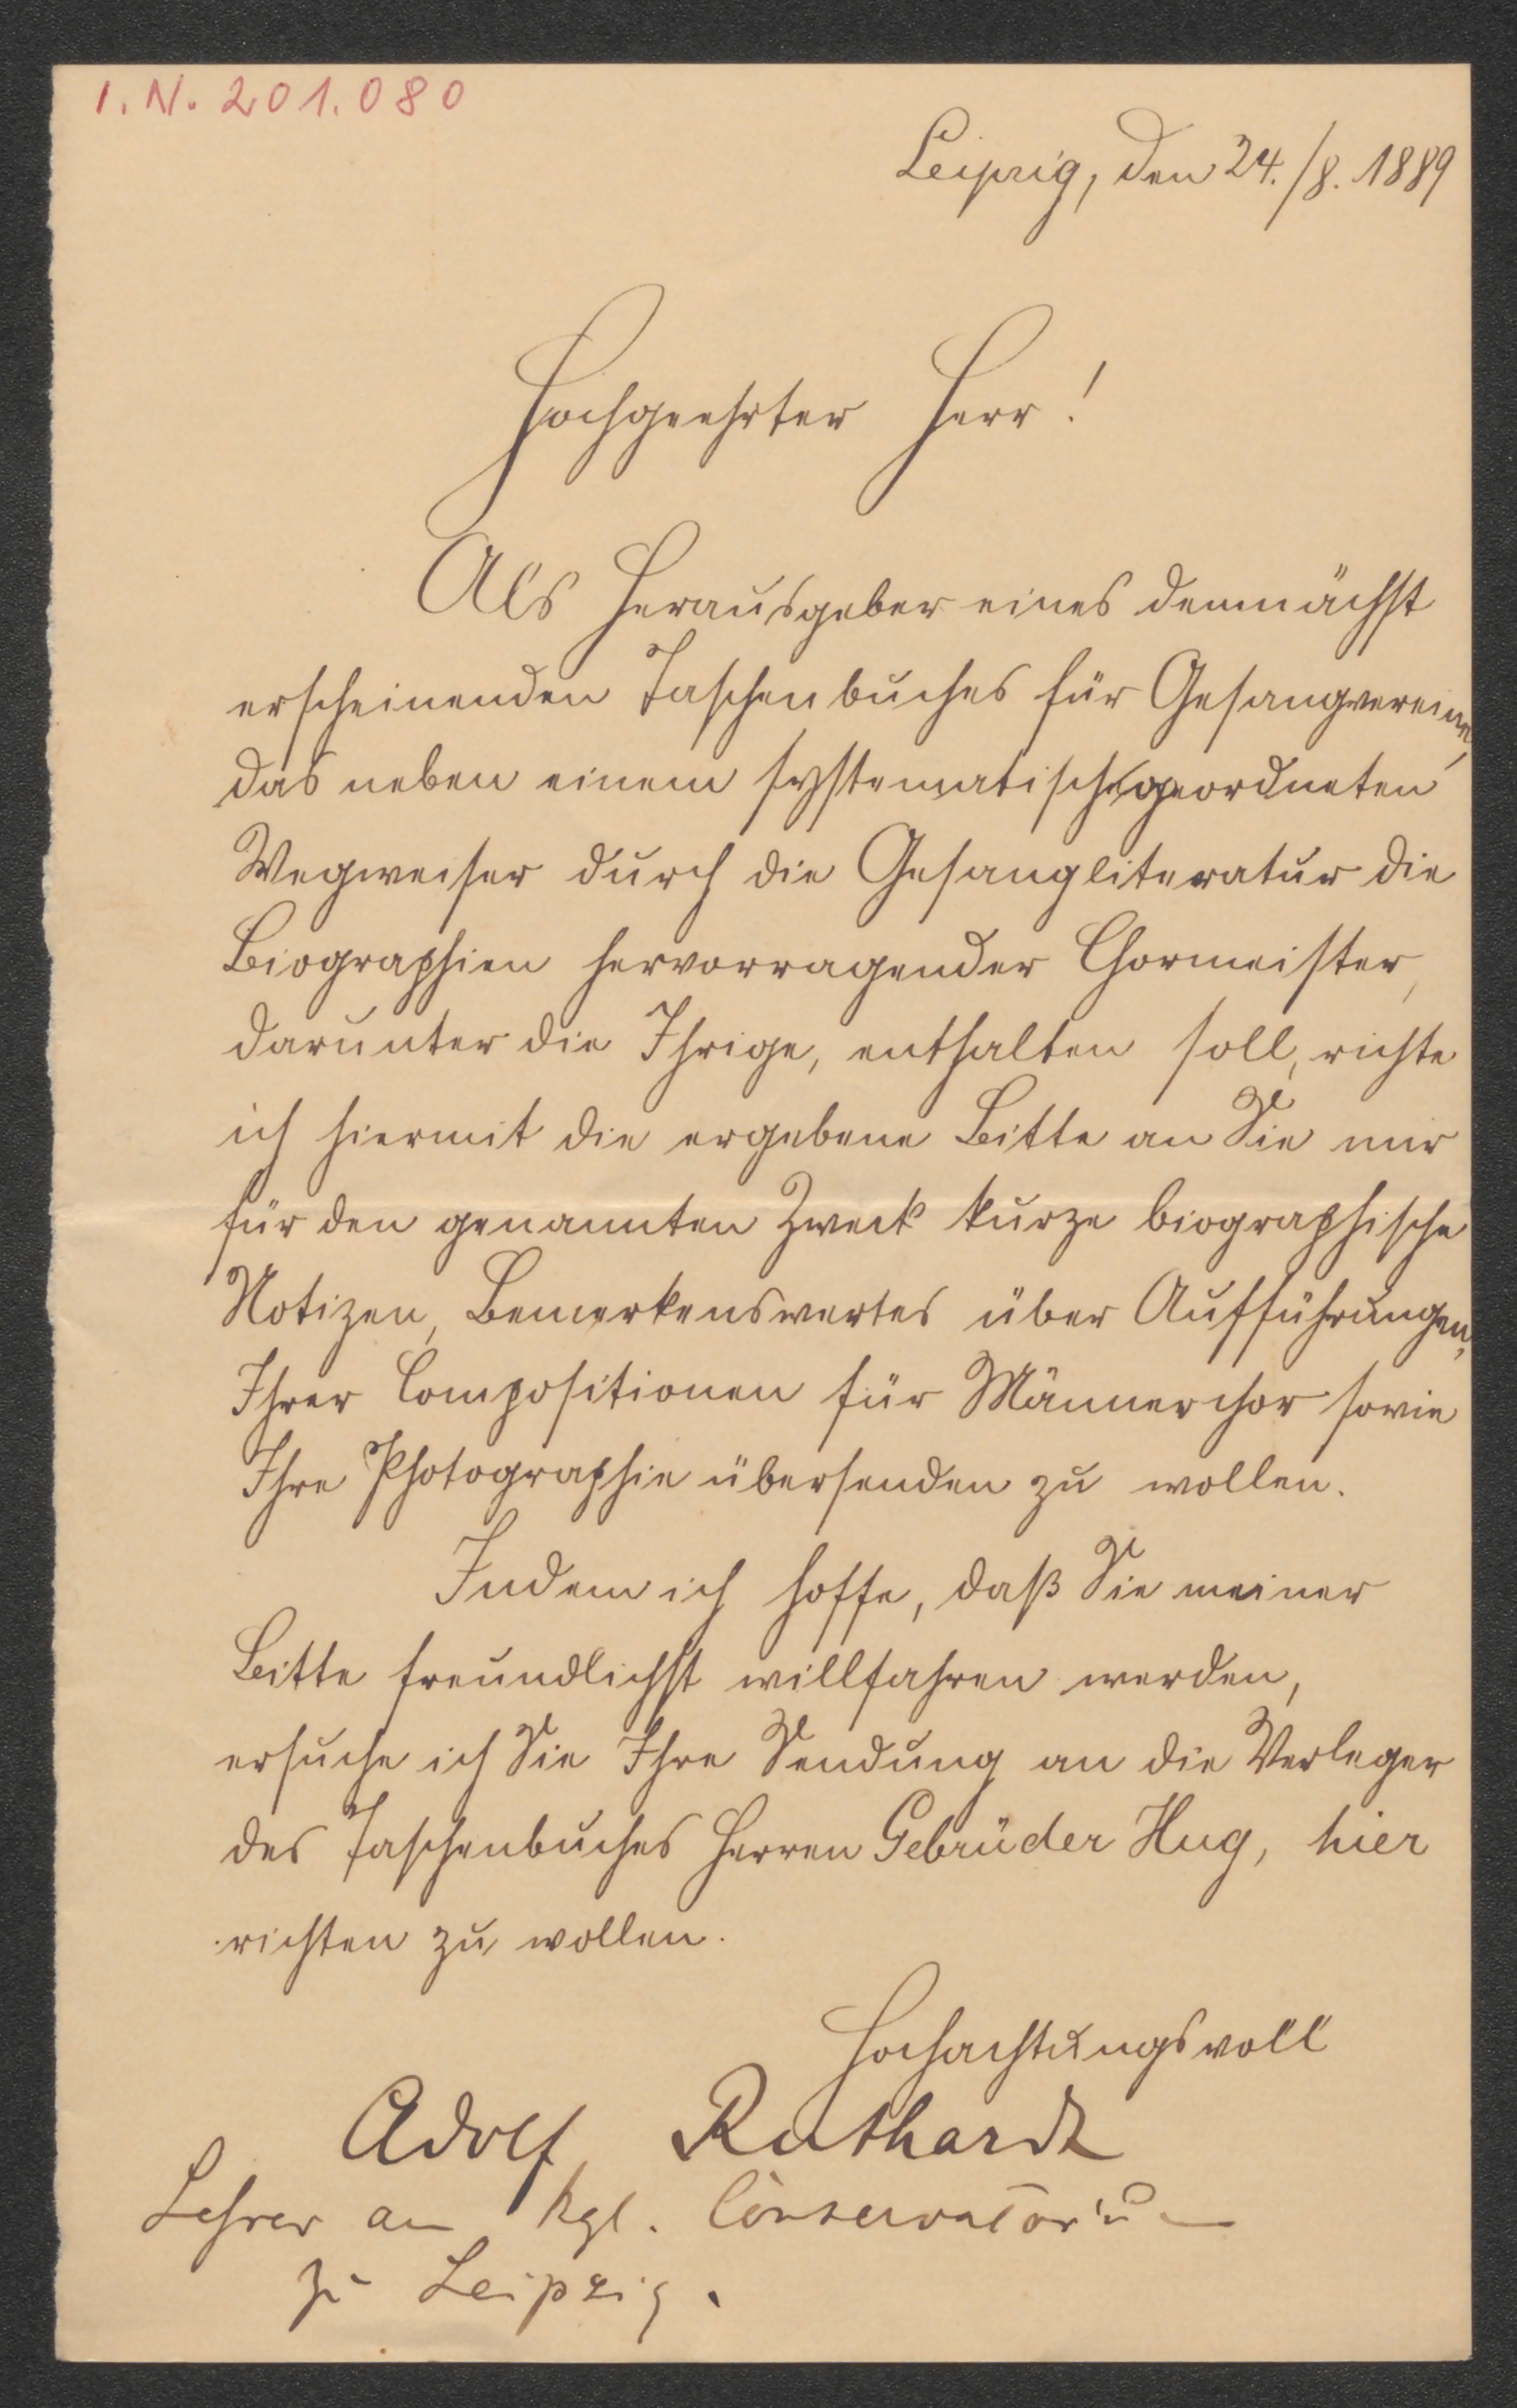 I.N. 201.080
Leipzig, den 24./8. 1889
Hochgeehrter Herr!
Als Herausgeber eines demnächst
erscheinenden Taschenbuches für Gesangvereine,
das neben einem systematisch geordneten
Wegweiser durch die Gesangliteratur die
Biographien hervorragender Chormeister,
darunter die Ihrige, enthalten soll, richte
ich hiermit die ergebene Bitte an Sie mir
für den genannten Zweck kurze biographische
Notizen, Bemerkenswertes über Aufführungen,
Ihrer Compositionen für Männerchor sowie
Ihre Photographie übersenden zu wollen.
Indem ich hoffe, daß Sie meiner
Bitte freundlichst willfahren werden,
ersuche ich Sie Ihre Sendung an die Verleger
des Taschenbuches Herren Gebrüder Hug, hier
richten zu wollen.
Hochachtungsvoll
Adolf Ruthardt
Lehrer am kgl. Conservatorium
zu Leipzig.